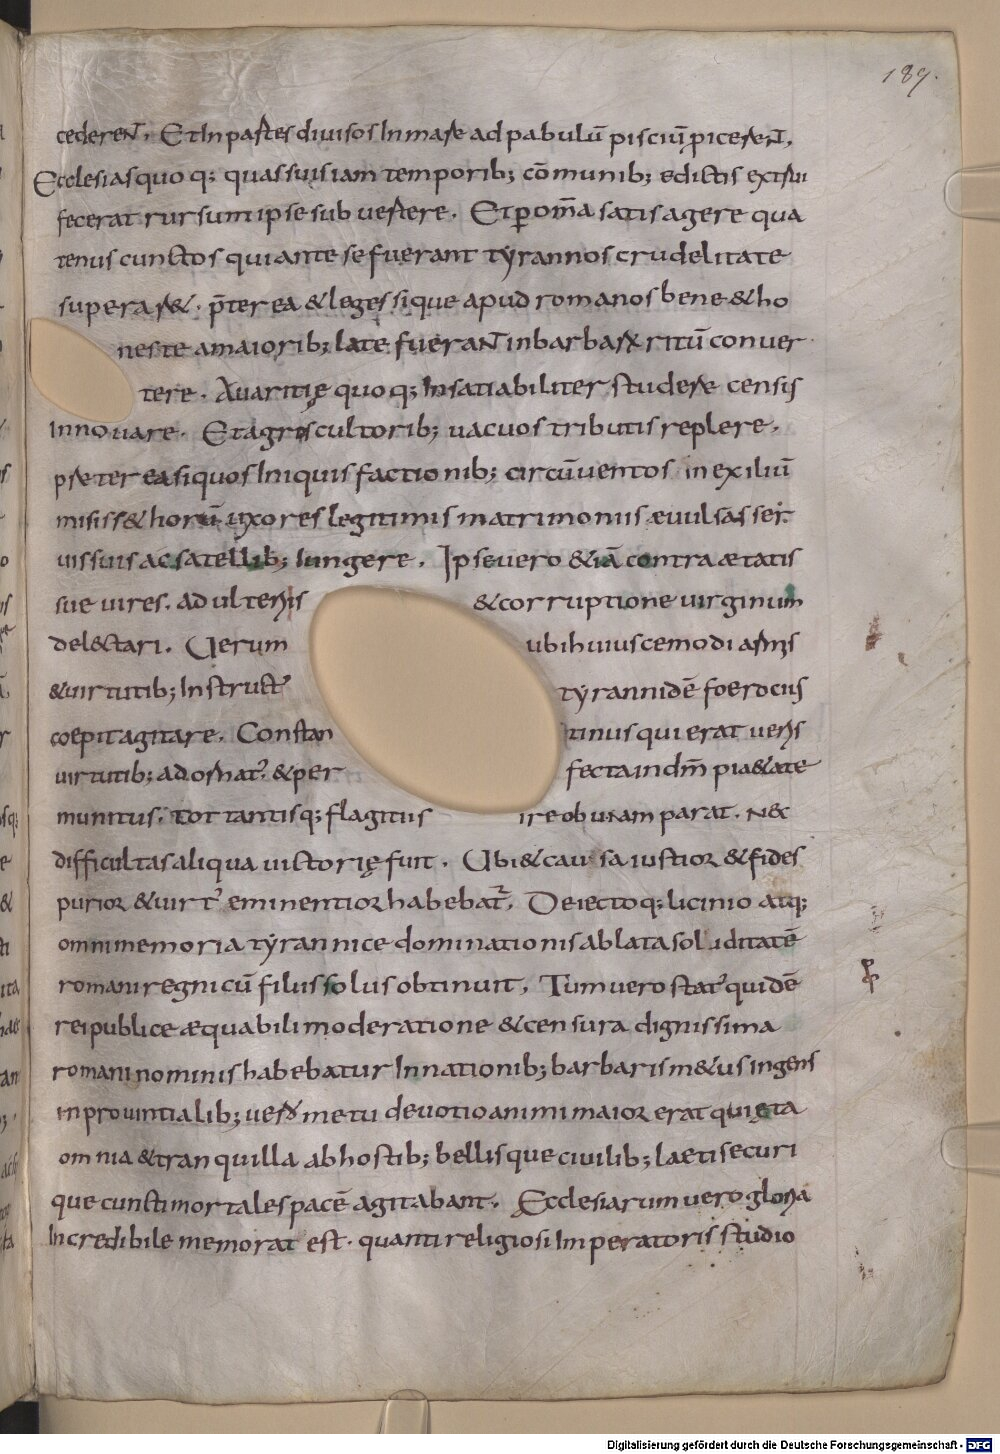 189.
cedereNT. Et In partes divisos In mare ad pabulū pisciū piceréNT.
Ecclesias quoq; quas suis iam temporib; cōmunib; edictis extrui
fecerat rursum ipse sub vertere. Et ꝑ om̄a satis agere qua
tenus cunctos qui ante se fuerant tyrannos crudelitate
superar&. p̄ter ea & leges sique apud romanos bene & ho
neste a maiorib; late fueraNT in barbarū ritū conver
tere. Avaritię quoq; Insatiabiliter studere censis
Innovare. Et agris cultorib; vacuos tributis replere.
præter ea siquos Iniquis factionib; circūventos in exiliū
misiss& horū uxores legitimis matrimoniis ævulsas ser
vis suis ac satellib; Iungere. Ipse vero &iā contra ætatis
sue vires. adulteriis &corruptione virginum
del&tari. Verum ubi huiuscemodi armis
&virtutib; Instruct᾿ tyrannidē foerocius
coepit agitare. Constantinus qui erat veris
virtutib; adornat᾿. & perfecta in dm̄ pi&ate
munitus. tot tantisq; flagitiis ire obviam parat. Nec
difficultas aliqua victorię fuit. Ubi & causa iustior & fides
purior & virt᾿ eminentior habebat᾿. Deiectoq; licinio atq;
omni memoria tyrannice dominationis ablata soliditatē
romani regni cū filiis solus obtinuit. Tum vero stat᾿ quidē
reipublice æquabili moderatione & censura dignissima
romani nominis habebatur In nationib; barbaris m&us ingens
in provintialib; verō metu devotio animi maior erat quięta
omnia & tranquilla ab hostib; bellisque civilib; laeti securi
que cuncti mortales pacē agitabant. Ecclesiarum vero gloria
Incredibile memorat est. quanti religiosi Imperatoris studio
Digitalisierung gefördert durch die Deutsche Forschungsgemeinschaft - DFG